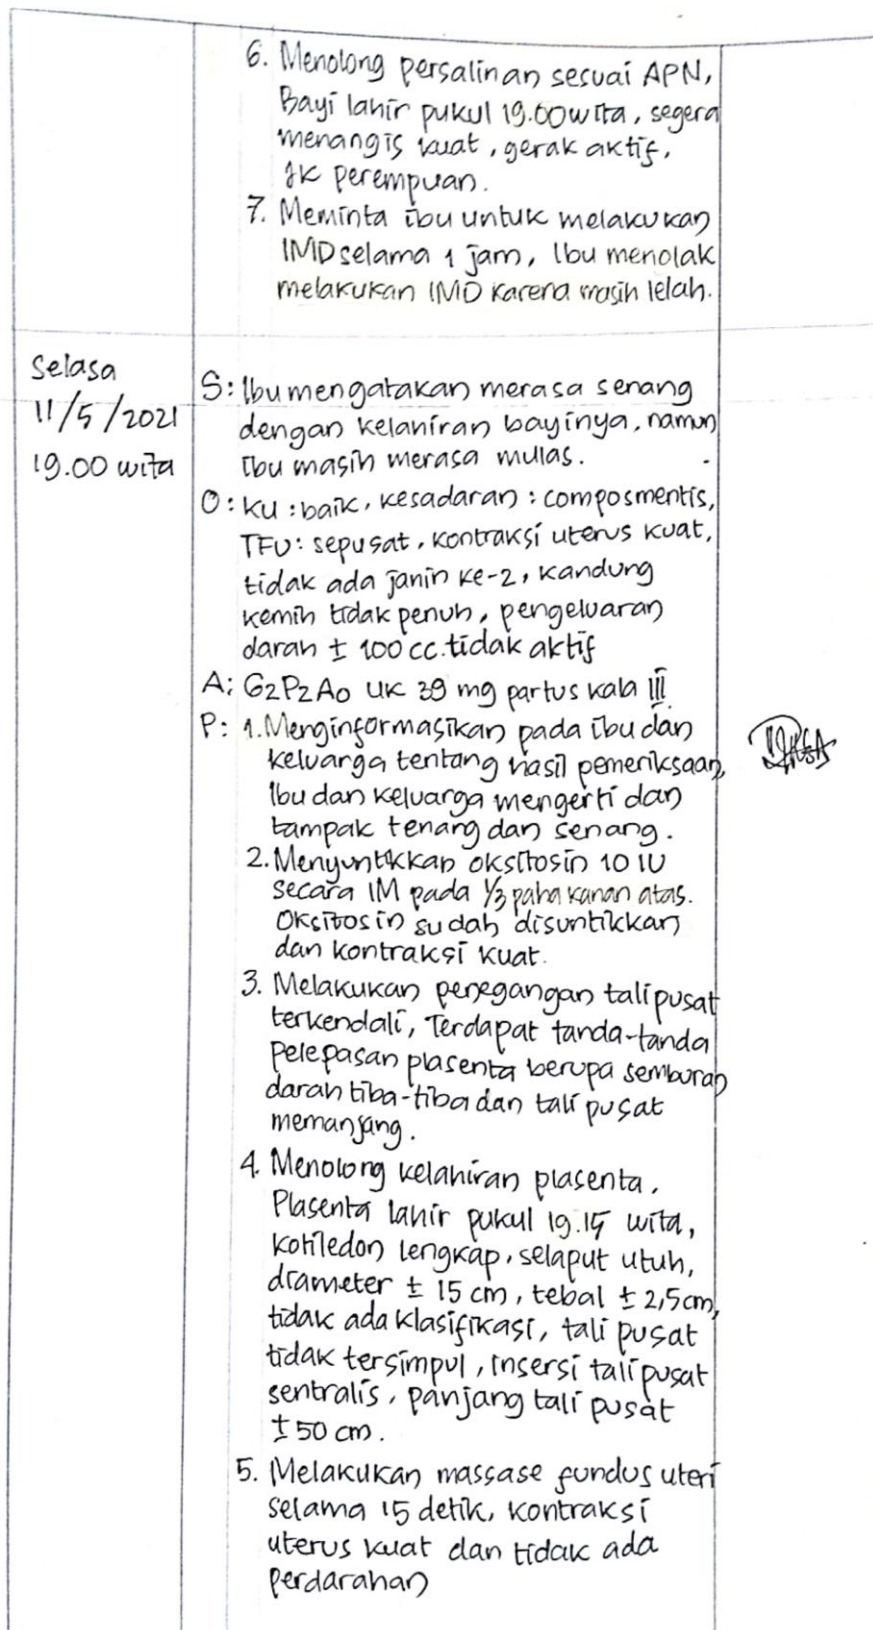 6. Menolong persalinan sesuai APN,
Bayi lahir pukul 19.00 wita, segera
menangis kuat, gerak aktif,
JK perempuan.
7. Meminta ibu untuk melakukan
IMD selama 1 jam, Ibu menolak
melakukan IMD karena masih lelah.
Selasa
11/5/2021
19.00 wita
S: Ibu mengatakan merasa senang
dengan kelahiran bayinya, namun
Ibu masih merasa mulas.
O: KU : baik, kesadaran : composmentis,
TFU : sepusat, kontraksi uterus kuat,
tidak ada janin ke-2, kandung
kemih tidak penuh, pengeluaran
darah ± 100 cc. tidak aktif
A: G2P2A0 UK 39 mg partus kala III
P: 1. Menginformasikan pada ibu dan
keluarga tentang hasil pemeriksaan,
Ibu dan keluarga mengerti dan
tampak tenang dan senang.
2. Menyuntikkan oksitosin 10 IU
secara IM pada 1/3 paha kanan atas.
Oksitosin sudah disuntikkan
dan kontraksi kuat.
3. Melakukan penegangan tali pusat
terkendali, Terdapat tanda-tanda
pelepasan plasenta berupa semburan
darah tiba-tiba dan tali pusat
memanjang.
4. Menolong kelahiran plasenta,
Plasenta lahir pukul 19.15 wita,
kotiledon lengkap, selaput utuh,
diameter ± 15 cm, tebal ± 2,5 cm,
tidak ada klasifikasi, tali pusat
tidak tersimpul, insersi tali pusat
sentralis, panjang tali pusat
± 50 cm.
5. Melakukan massase fundus uteri
selama 15 detik, kontraksi
uterus kuat dan tidak ada
perdarahan